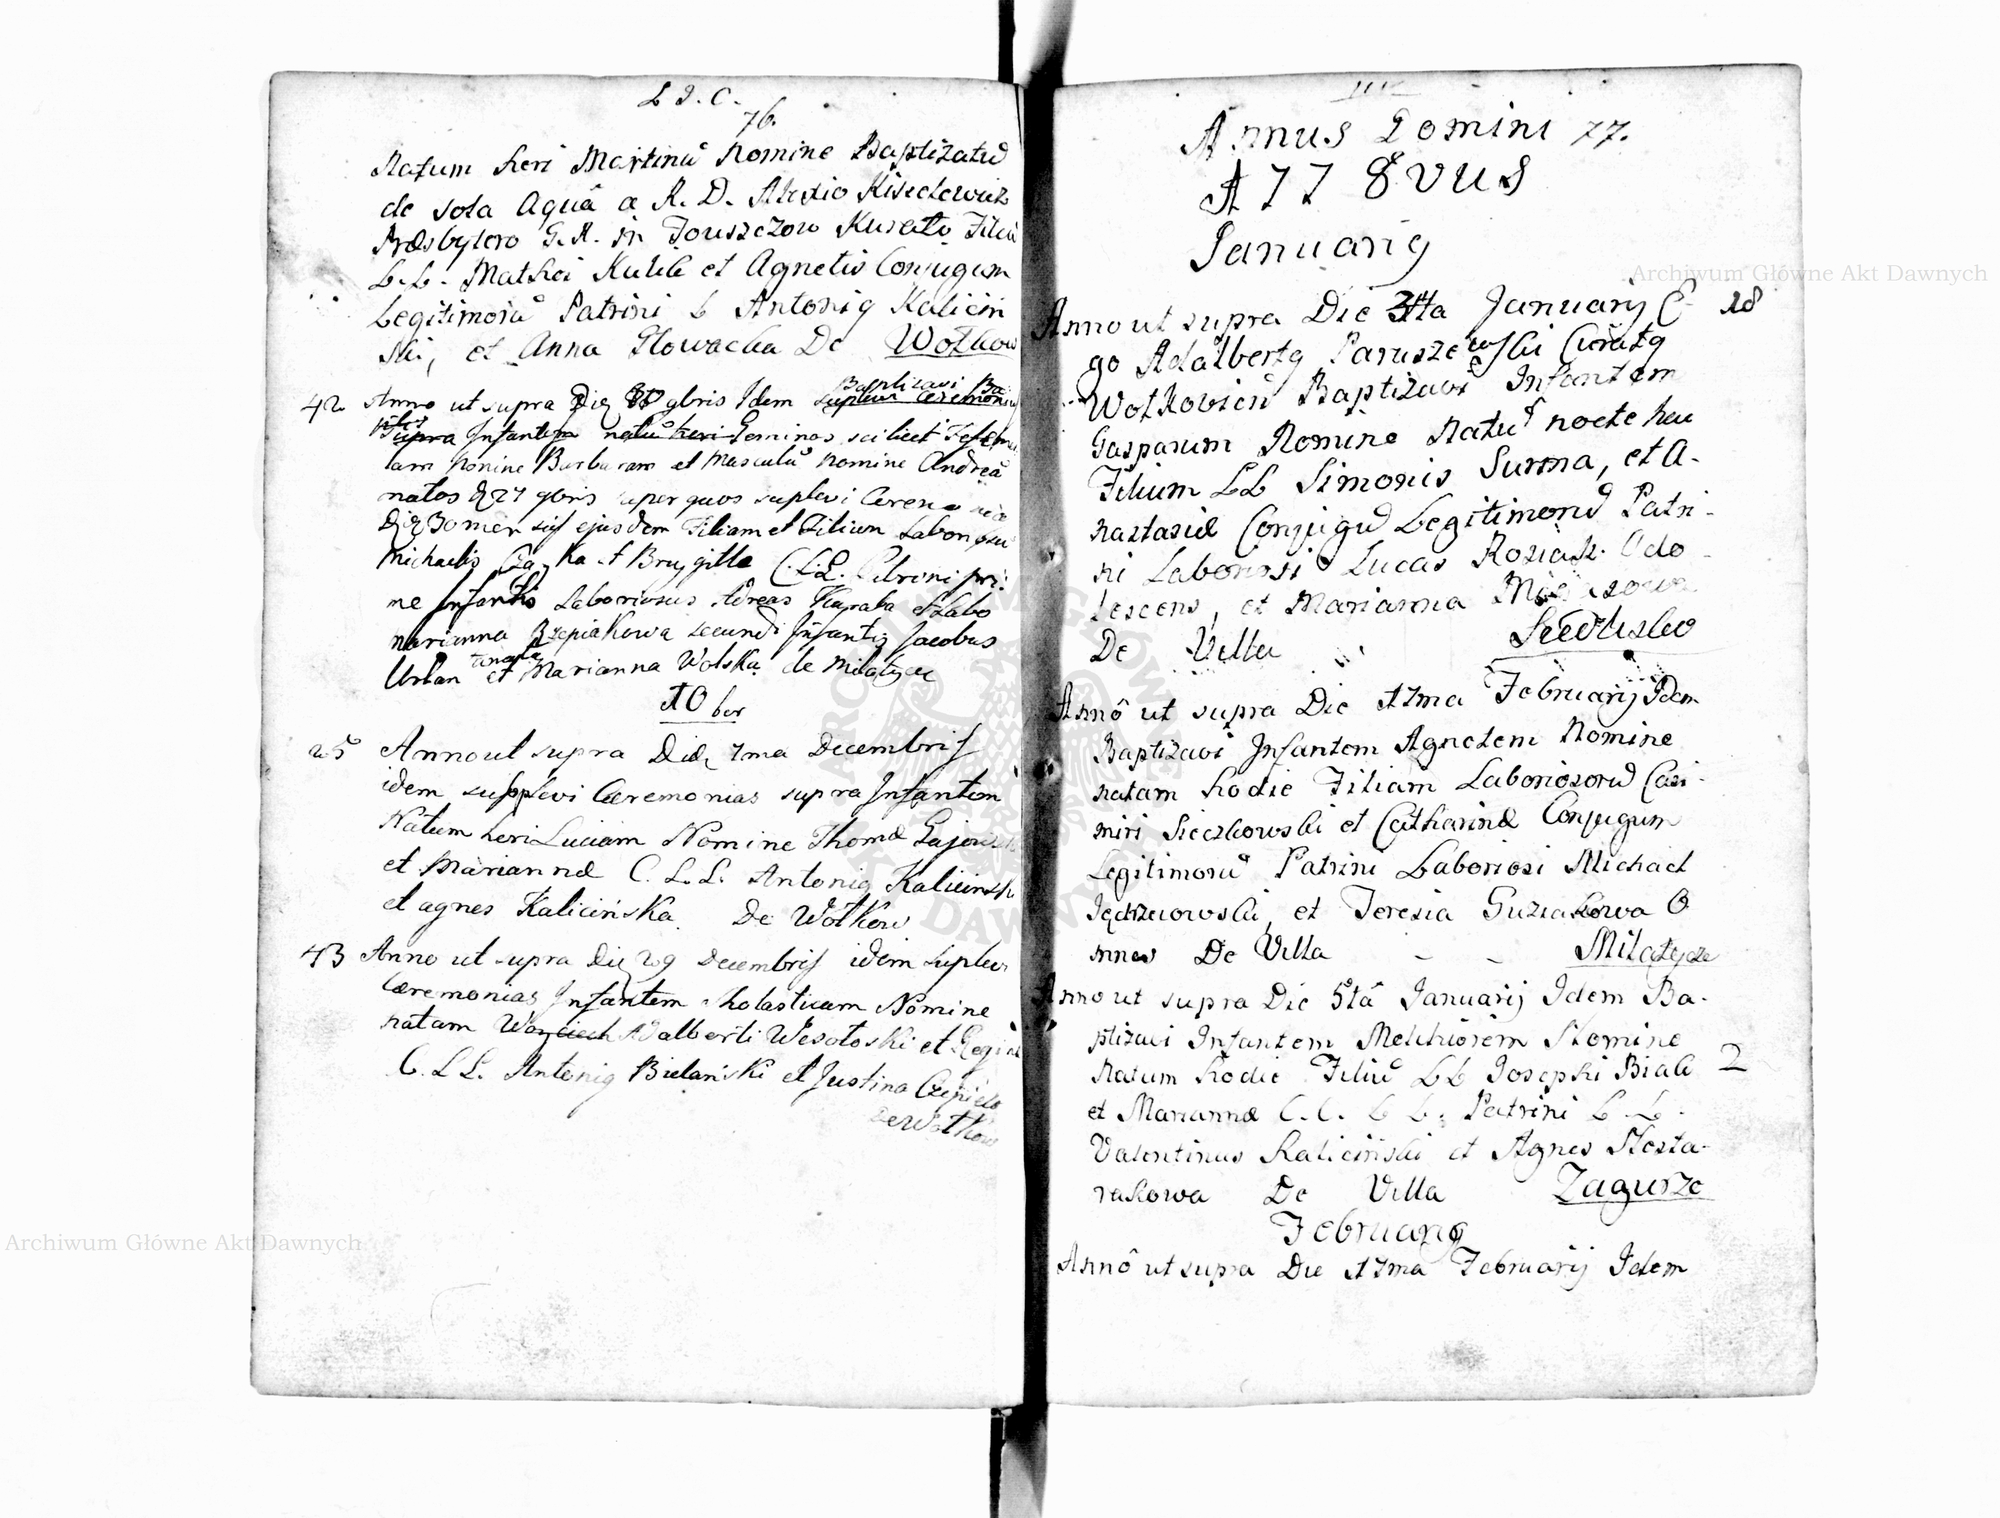 L J. C.
76.
Natum heri Martinũ Nomine Baptizatũ
de sola Aquâ a R. D. Alexio Kisielewicz
Præsbytero G. R. in Touszczow Kurato Filiũ
L.L. Mathei Kulik et Agnetis Conjugum
Legitimorũ Patrini L Antoniq Kalicin
ski, et Anna Glowacka De Wołkow
42 Anno ut supra Die gbris Idem Baptizavi Ba
suplevi Ceremonias
supra Infantem natũ heri Geminos scilicet Fœmel
lam nomine Barbaram et Masculũ nomine Andreã
natos d 27 gbris super quos suplevi Ceremo nias
Die 30 mensis ejusdem Filiam et Filium Laboriosu
Michaelis et Brygitta C. L.L. Patroni pri:
me Infantis Laboriosus Adreas et Labo
marianna Rzepiakowa secundi Infantiq Jacobus
Urban et tanq Marianna Wolska de Milatycze
10 ber
25 Anno ut supra Die 7ma Decembris
idem supplevi Cæremonias supra Infantem
Natum heri Luciam Nomine Thomæ
et Mariannæ C. L.L. Antoniq Kalicinsk
et agnes Kalicińska De Wołkow
43 Anno ut supra Die 29 Decembris idem suplevi
Cæremonias Infantem Scholasticam Nomine
natam Woyciech Adalberti Wesołoski et Regina
C. L L. Antoniq Bielański et Justina
de Wołkow
Annus Domini 77.
1778vus
Januariq
Anno ut supra Die Januarij E- 18
go Adalbertq Paruszewski Curatq
Wołkovien Baptizavi Infantem
Gasparum Nomine Natũ nocte hac
Filium LL Simonis Surma, et A-
nastasiæ Conjugũ Legitimorũ Patri-
ni Laboriosi Lucas Rosiak Ado-
lescens, et Marianna
De Villa Siedlisko
Annô ut supra Die 17ma Februarij Idem
Baptizavi Infantem Agnetem Nomine
natam hodie Filiam Laboriosorũ Casi-
miri Sieczkowski et Catharinæ Conjugum
Legitimorũ Patrini Laboriosi Michael
Jędrzeiowski, et Teresia Guziakowa O
mnes De Villa - - Milatycze
Anno ut supra Die 5tâ Januarij Idem Ba-
ptizavi Infantem Melchiorem Nomine
Natum hodie Filiũ LL Josephi Biali 2
et Mariannæ C. C. L L. Patrini L. L.
Valentinus Kaliciński et Agnes Nesta-
rakowa De Villa Zagurze
Februariq
Annô ut supra Die 17ma Februarij Idem
Archiwum Główne Akt Dawnych
Archiwum Główne Akt Dawnych